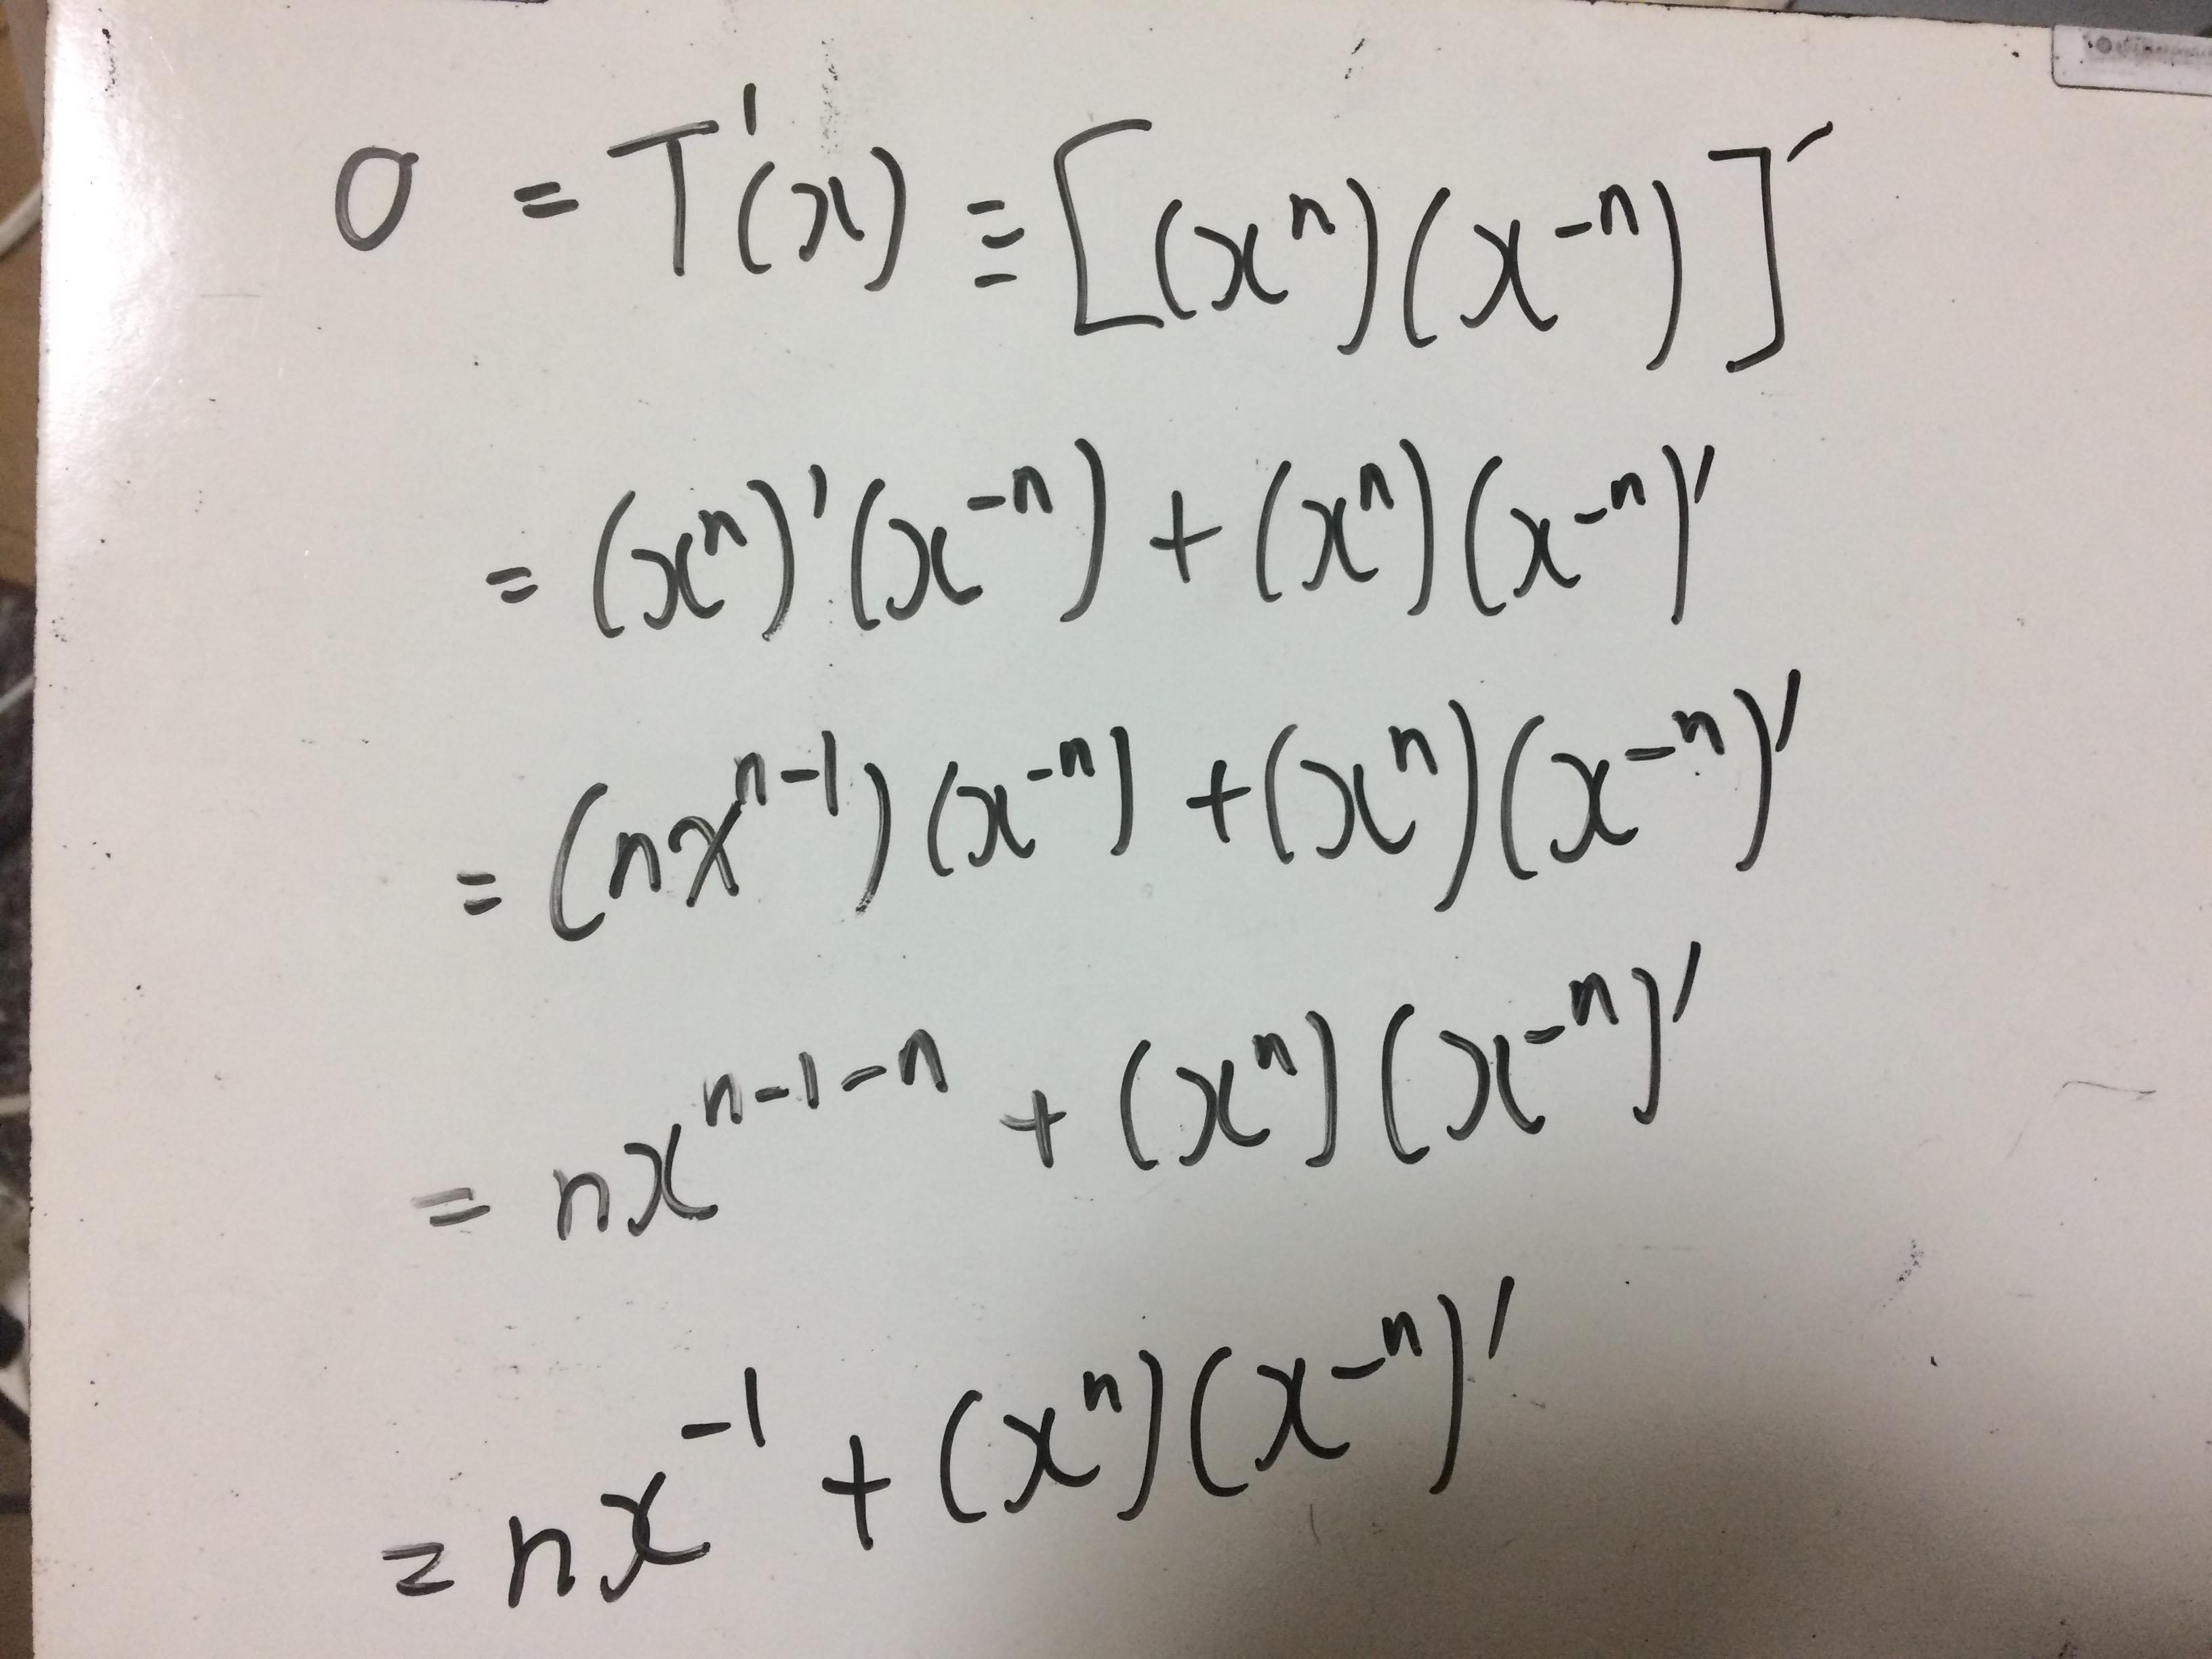 0 = T'(x) ≡ [(xⁿ)(x⁻ⁿ)]'
= (xⁿ)'(x⁻ⁿ) + (xⁿ)(x⁻ⁿ)'
= (nxⁿ⁻¹)(x⁻ⁿ) + (xⁿ)(x⁻ⁿ)'
= nxⁿ⁻¹⁻ⁿ + (xⁿ)(x⁻ⁿ)'
= nx⁻¹ + (xⁿ)(x⁻ⁿ)'